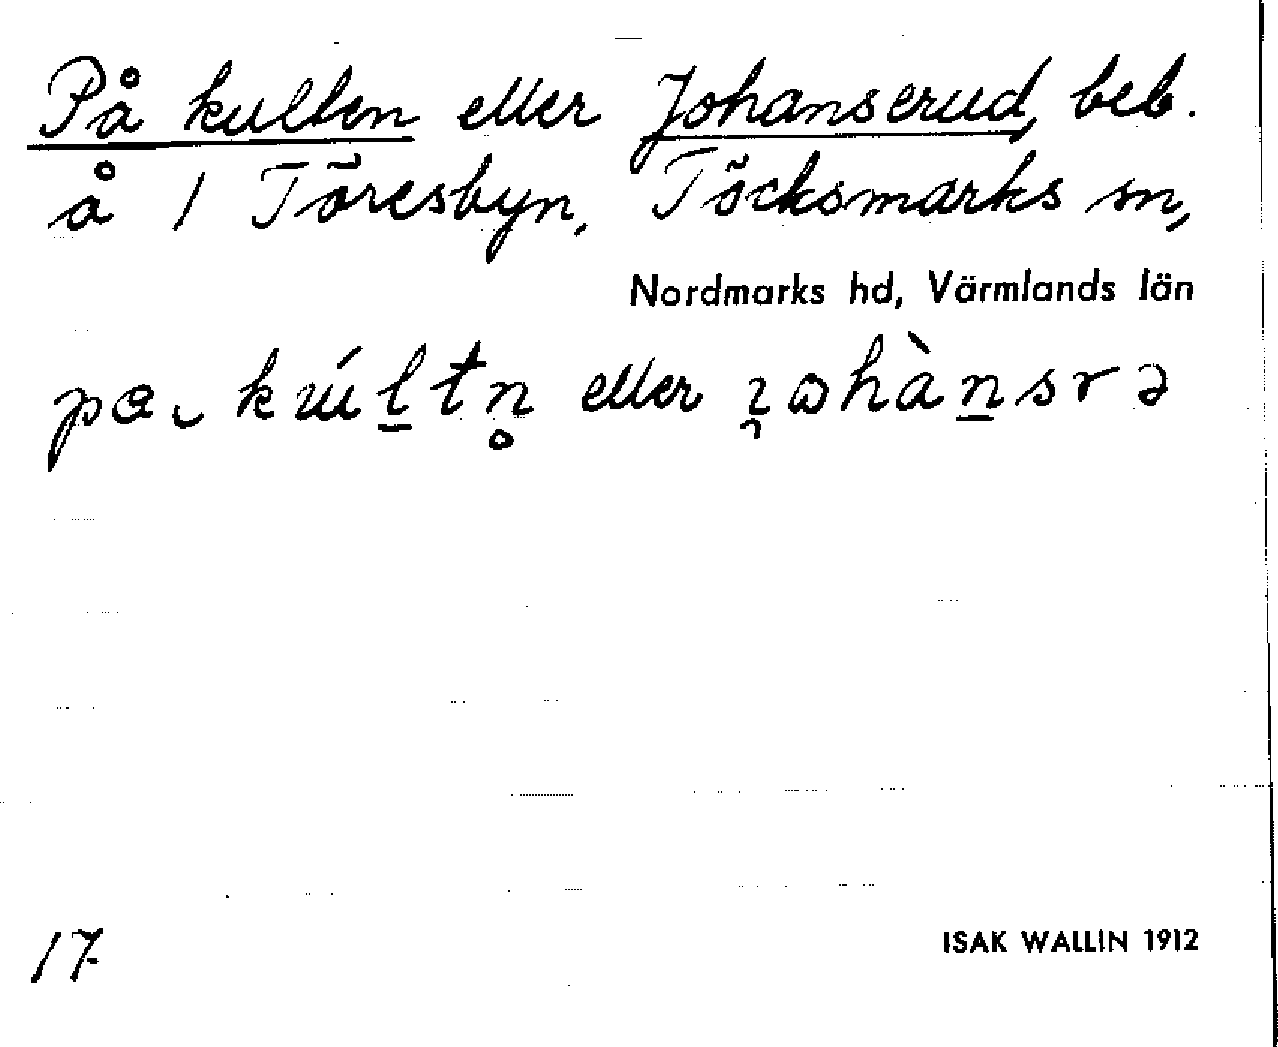 På kullen eller Johanserud, beb.
å 1 Töresbyn, Töcksmarks sn,
Nordmarks hd, Värmlands län
eller
17
ISAK WALLIN 1912